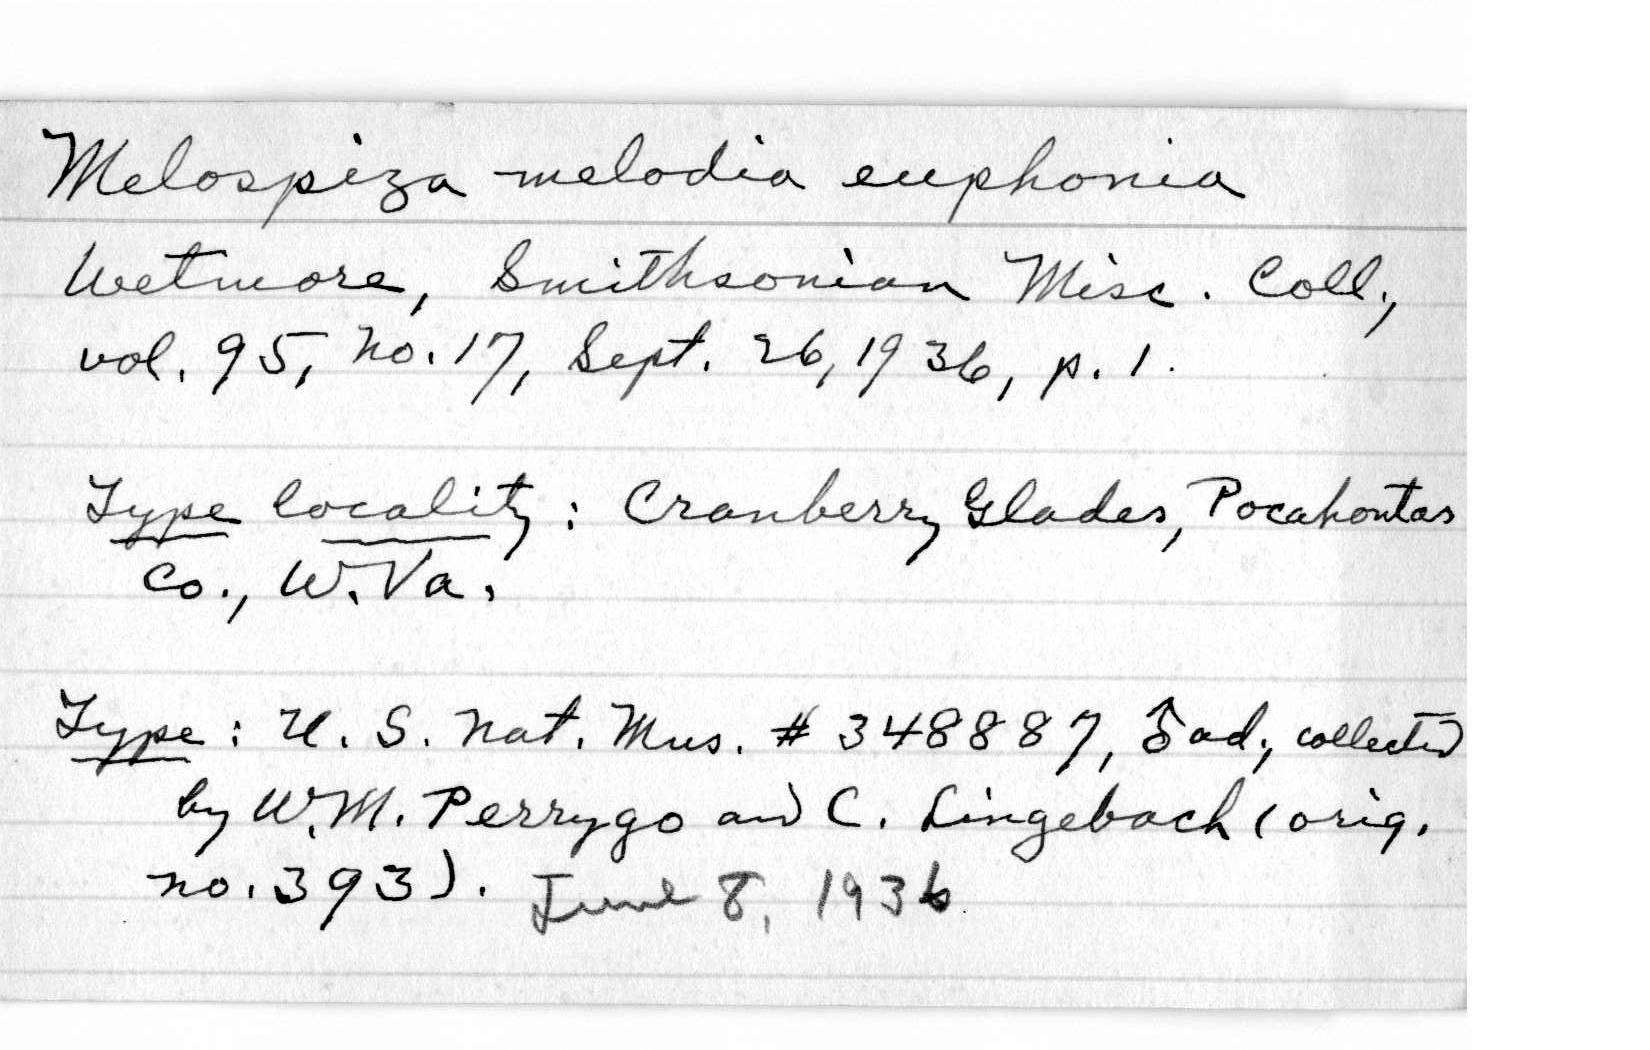 Melospiza melodia euphonia
Wetmore, Smithsonian Misc. Coll.,
vol. 95, no. 17, Sept. 26, 1936, p. 1.
Type locality: Cranberry Glades, Pocahontas
Co., W. Va.
Type: U. S. Nat. Mus. # 348887, ♂ ad., collected
by W. M. Perrygo and C. Lingebach (orig.
no. 393). June 8, 1936